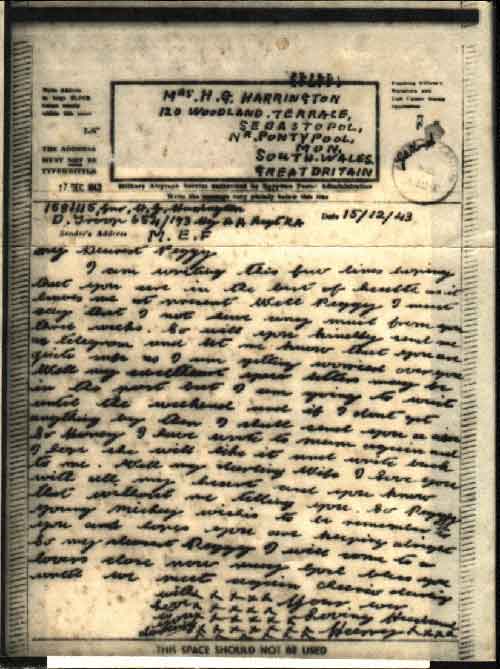 Write Address
in large BLOCK
letters wholly
within this panel
THE ADDRESS
MUST NOT BE
TYPEWRITTEN
Mrs. H.G. HARRINGTON
120 WOODLAND. TERRACE,
SEBASTOPOL,
Nr. PONTYPOOL,
MON,
SOUTH. WALES.
GREAT BRITAIN
17 DEC 1943
Write the message very plainly below this line
Date 15/12/43
Sender's Address
M. E. F
My Dearest Peggy
I am writing this few lines hoping
that you are in the best of health as it
leaves me at present Well Peggy I must
say that I not
this week. So will you kindly send me
a telegram and let me know that you are
quite safe as I am getting worried over you
Well my sweetheart your letters may be
in the post but I am going to wait
until the weekend and if I dont get
anything by then I shall send you a
So Honey I have wrote to mum again and
I hope she will like it and write back
to me. Well my darling Wife I love you
with all my heart and you know
that without me telling you. So Peggy
young mickey wishes to be remembered to
you and hopes you are keeping alright
So my dearest Peggy I will come to a
lovers close now may god bless you
until we meet again cheerio darling
Your ever
loving Husband
Harry
THIS SPACE SHOULD NOT BE USED